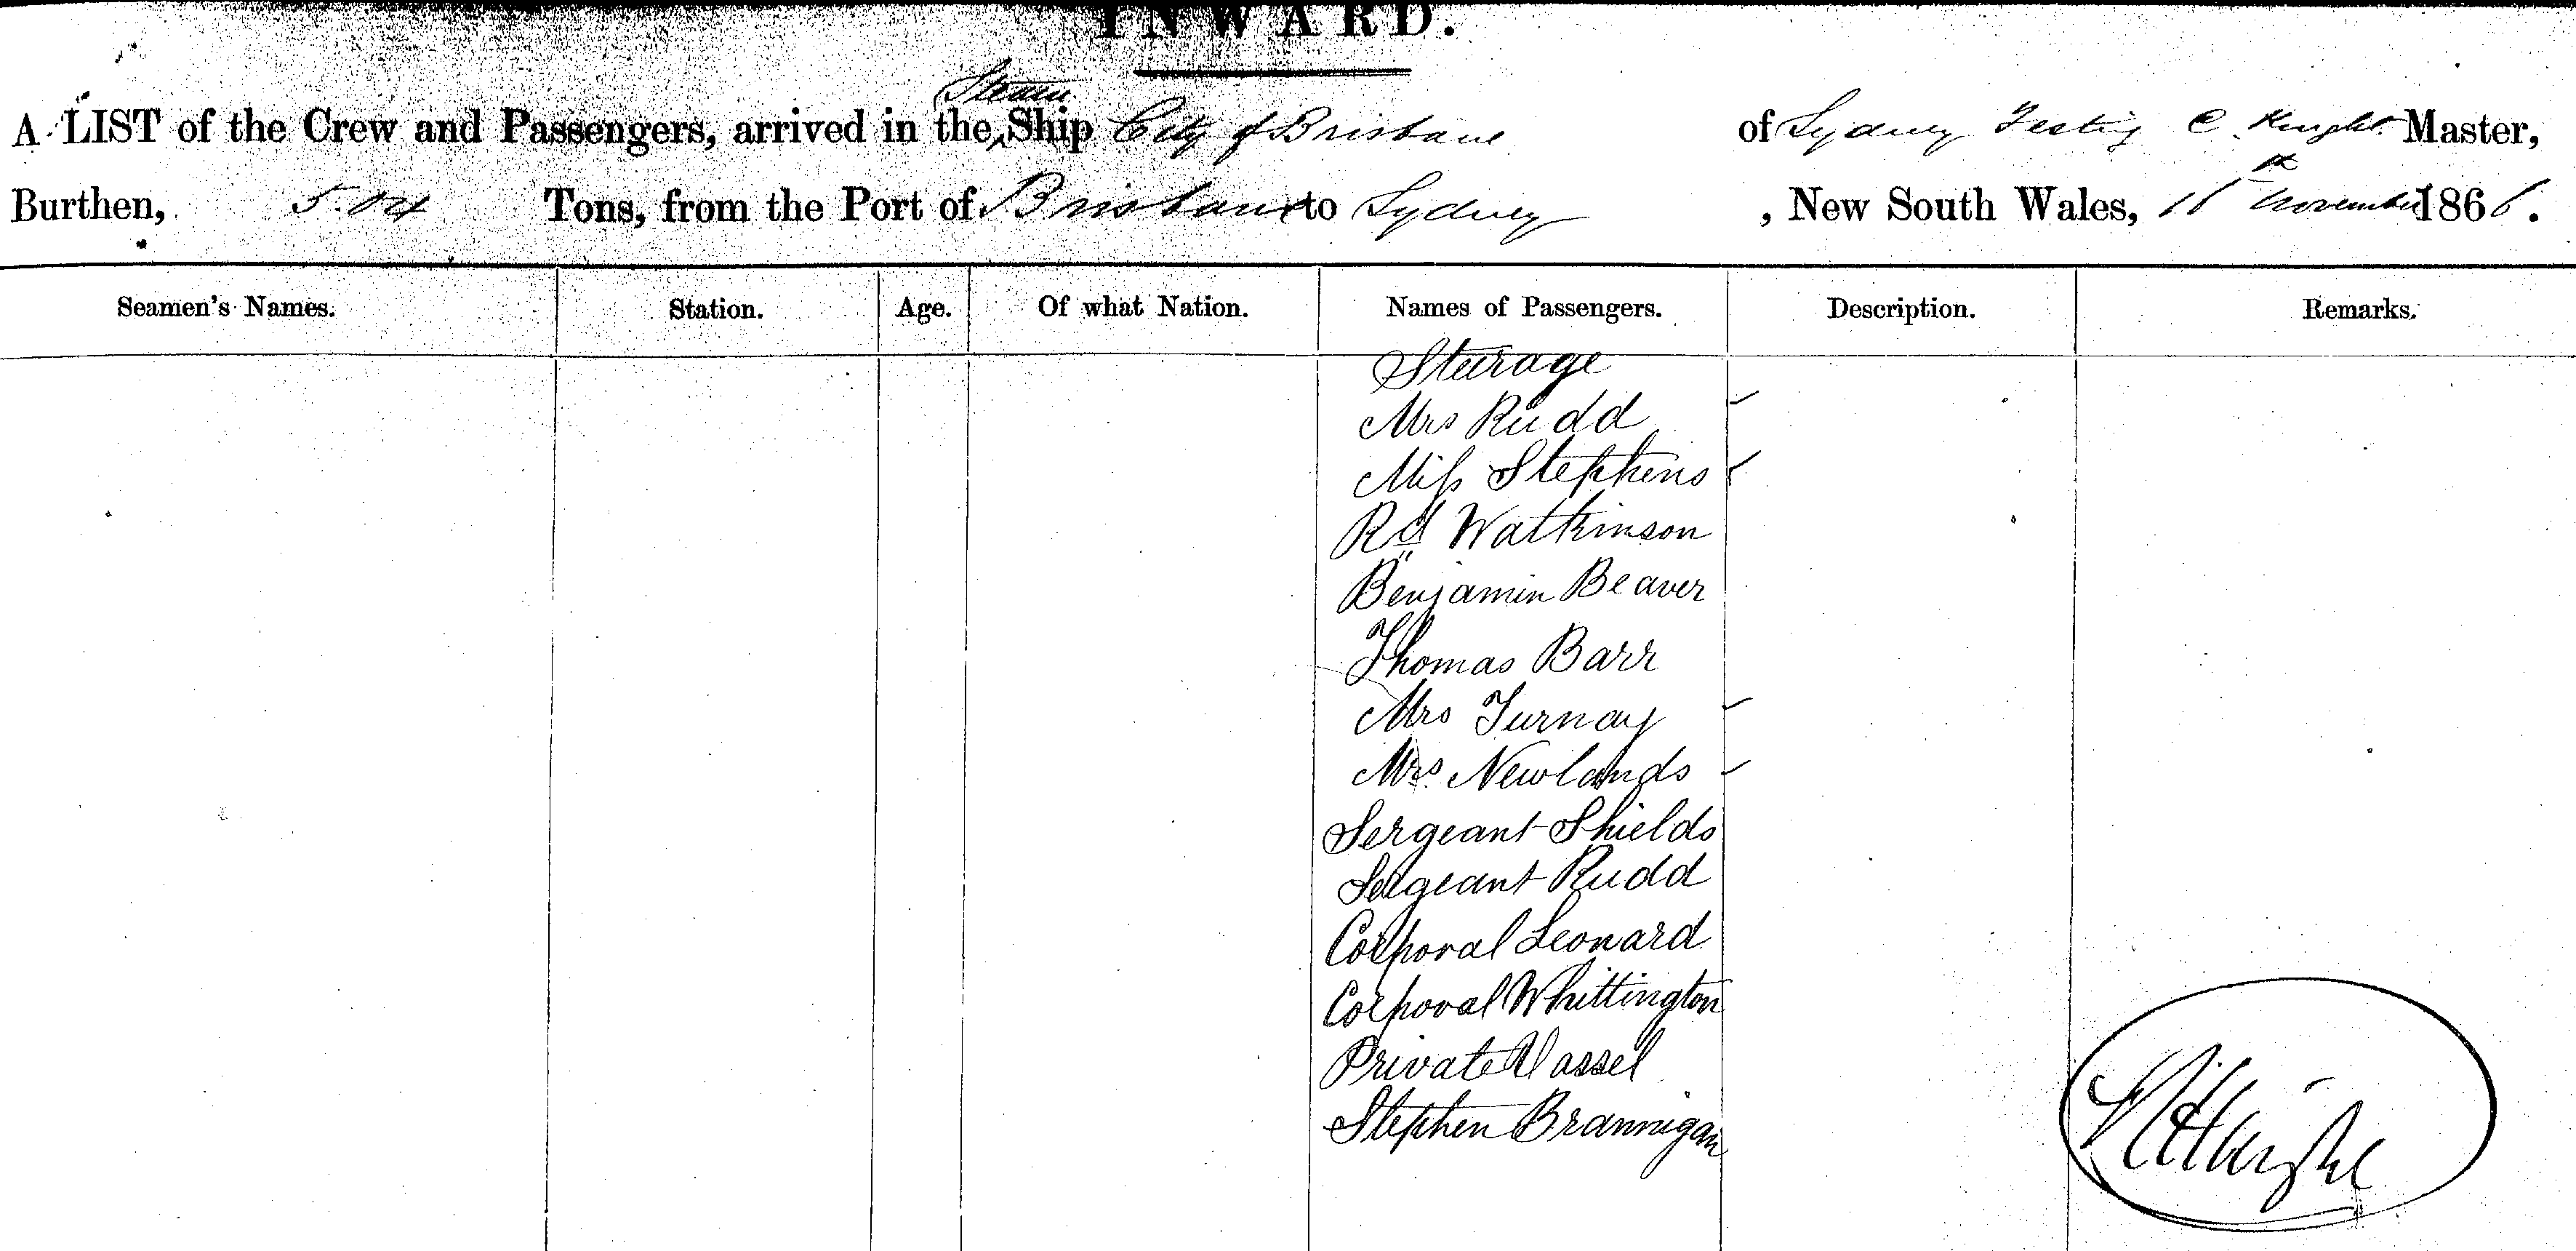 INWARD.
Steam
A LIST of the Crew and Passengers, arrived in the Ship City of Brisbane of Sydney Testing C. Knight Master,
Burthen, 504 Tons, from the Port of Brisbane to Sydney , New South Wales, 16th November 1866.
Seamen's Names. Station. Age. Of what Nation. Names of Passengers. Description. Remarks.
Steerage
Mrs Rudd
Miss Stephens
Rd Watkinson
Benjamin Beaver
Thomas Barr
Mrs Turnay
Mrs Newlands
Sergeant Shields
Sergeant Rudd
Corporal Leonard
Corporal Whittington
Private Vassel
Stephen Brannigan